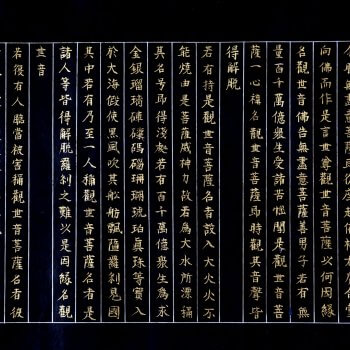 向佛而作是言世尊觀世音菩薩以何因緣
名觀世音佛告無盡意菩薩善男子若有無
量百千萬億衆生受諸苦惱聞是觀世音菩
薩一心稱名觀世音菩薩即時觀其音聲皆
得解脫
若有持是觀世音菩薩名者設入大火火不
能燒由是菩薩威神力故若為大水所漂稱
其名号即得淺處若有百千萬億衆生為求
金銀瑠璃硨磲碼碯珊瑚琥珀真珠等寶入
於大海假使黑風吹其舩舫飄墮羅剎鬼國
其中若有乃至一人稱觀世音菩薩名者是
諸人等皆得解脫羅剎之難以是因緣名觀
世音
若復有人臨當被害稱觀世音菩薩名者彼